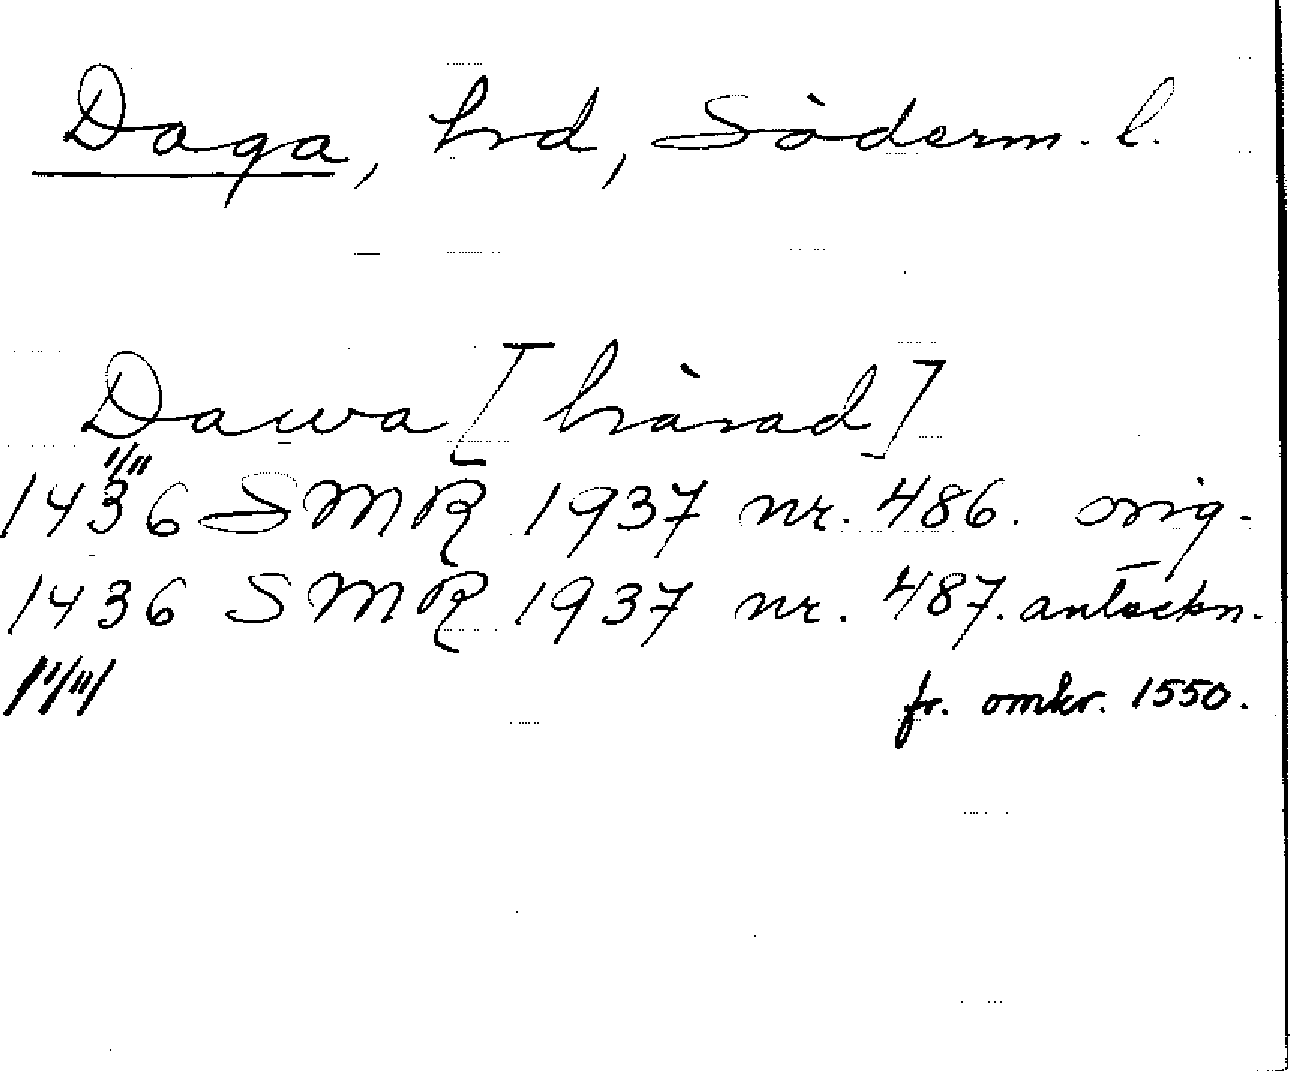 Daga, hrd, Söderm. l.
Dawa [härad]
1/11
1436 SMR 1937 nr. 486. orig.
1436 SMR 1937 nr. 487. anteckn.
1/11 fr. omkr. 1550.